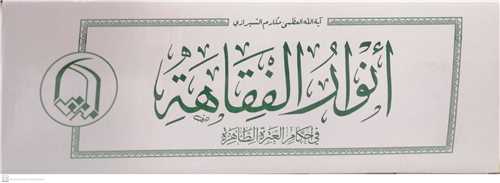 آية الله العظمى مكارم الشيرازي
أنوار الفقاهة
في أحكام العترة الطاهرة